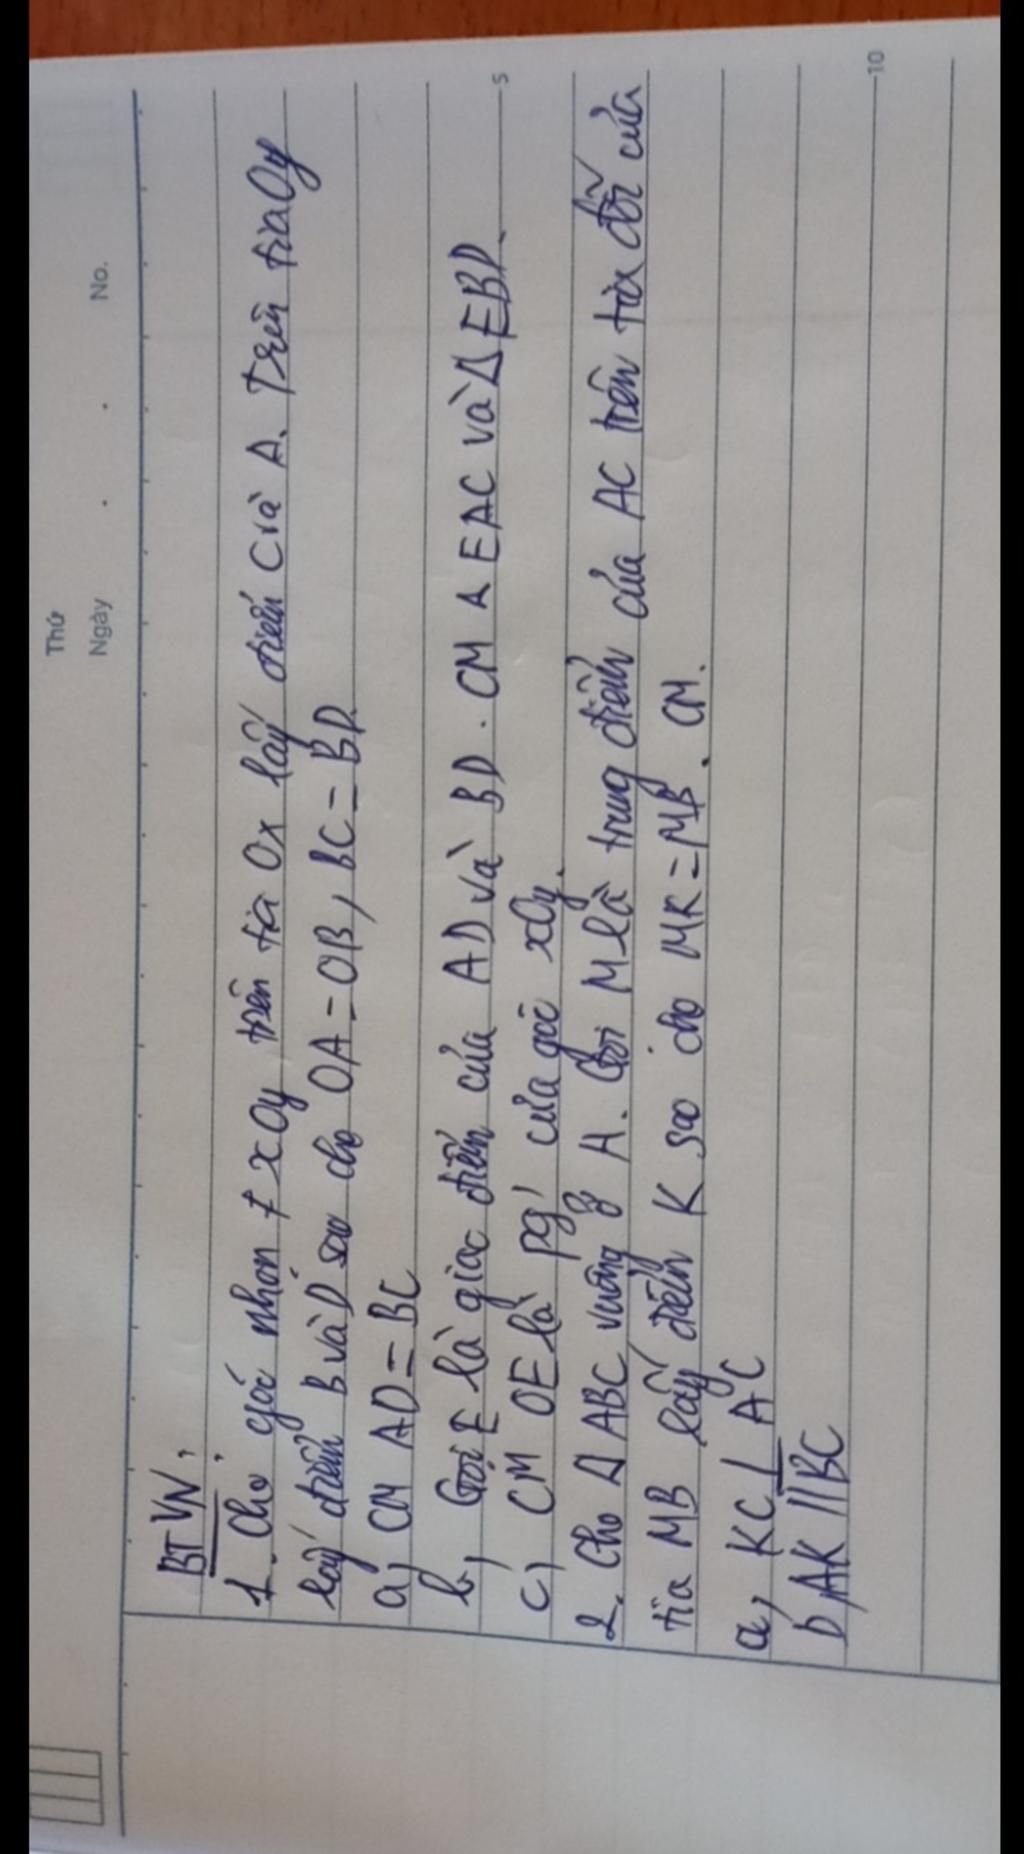 Thứ
Ngày . . No.
BTVN:
1. Cho góc nhọn ≠ xOy trên tia Ox lấy điểm C và A. Trên tia Oy
lấy điểm B và D sao cho OA = OB, BC = BD.
a, CM AD = BC
b, Gọi E là giao điểm của AD và BD. CM Δ EAC và Δ EBD.
c, CM OE là pg' của góc xOy.
2. Cho Δ ABC vuông ở A. Gọi M là trung điểm của AC trên tia đối của
tia MB lấy điểm K sao cho MK = MB. CM.
a, KC ⊥ AC
b, AK // BC
5
10